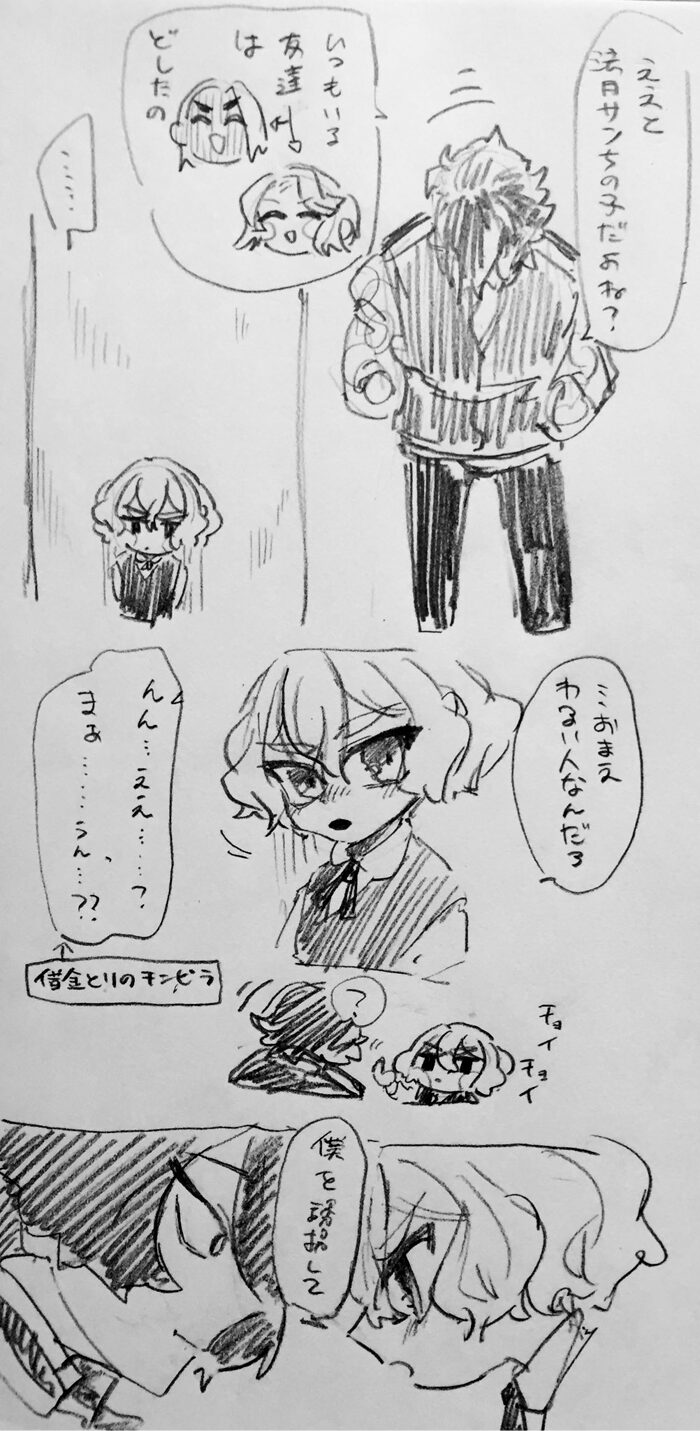 ええと
法月サンちの子だよね?
いつもいる
友達
は
どしたの
……
…おまえ
わるい人なんだろ
んん…ええ……?
まぁ……うん…??
借金とりのチンピラ
?
チョイ
チョイ
僕を誘拐して